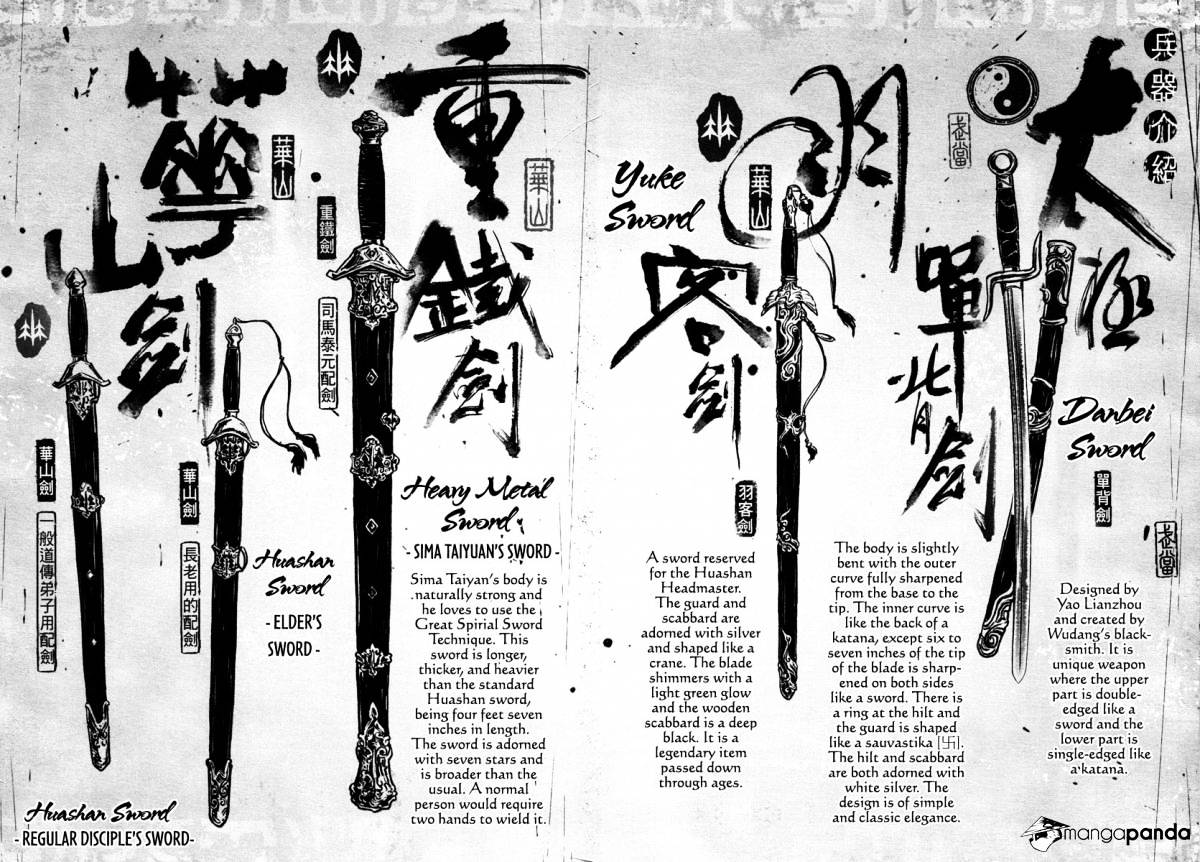 兵器介紹
太極
武當
單背劍
Danbei
Sword
單背劍
武當
Designed by
Yao Lianzhou
and created by
Wudang's black-
smith. It is
unique weapon
where the upper
part is double-
edged like a
sword and the
lower part is
single-edged like
a katana.
The body is slightly
bent with the outer
curve fully sharpened
from the base to the
tip. The inner curve is
like the back of a
katana, except six to
seven inches of the tip
of the blade is sharp-
ened on both sides
like a sword. There is
a ring at the hilt and
the guard is shaped
like a sauvastika [卍].
The hilt and scabbard
are both adorned with
white silver. The
design is of simple
and classic elegance.
羽客劍
華山
Yuke
Sword
羽客劍
A sword reserved
for the Huashan
Headmaster.
The guard and
scabbard are
adorned with silver
and shaped like a
crane. The blade
shimmers with a
light green glow
and the wooden
scabbard is a deep
black. It is a
legendary item
passed down
through ages.
重鐵劍
華山
重鐵劍
司馬泰元配劍
Heavy Metal
Sword
- SIMA TAIYUAN'S SWORD -
Sima Taiyan's body is
naturally strong and
he loves to use the
Great Spirial Sword
Technique. This
sword is longer,
thicker, and heavier
than the standard
Huashan sword,
being four feet seven
inches in length.
The sword is adorned
with seven stars and
is broader than the
usual. A normal
person would require
two hands to wield it.
華山劍
華山
華山劍
長老用的配劍
Huashan
Sword
- ELDER'S
SWORD -
華山劍
一般道傳弟子用配劍
Huashan Sword
- REGULAR DISCIPLE'S SWORD-
mangapanda